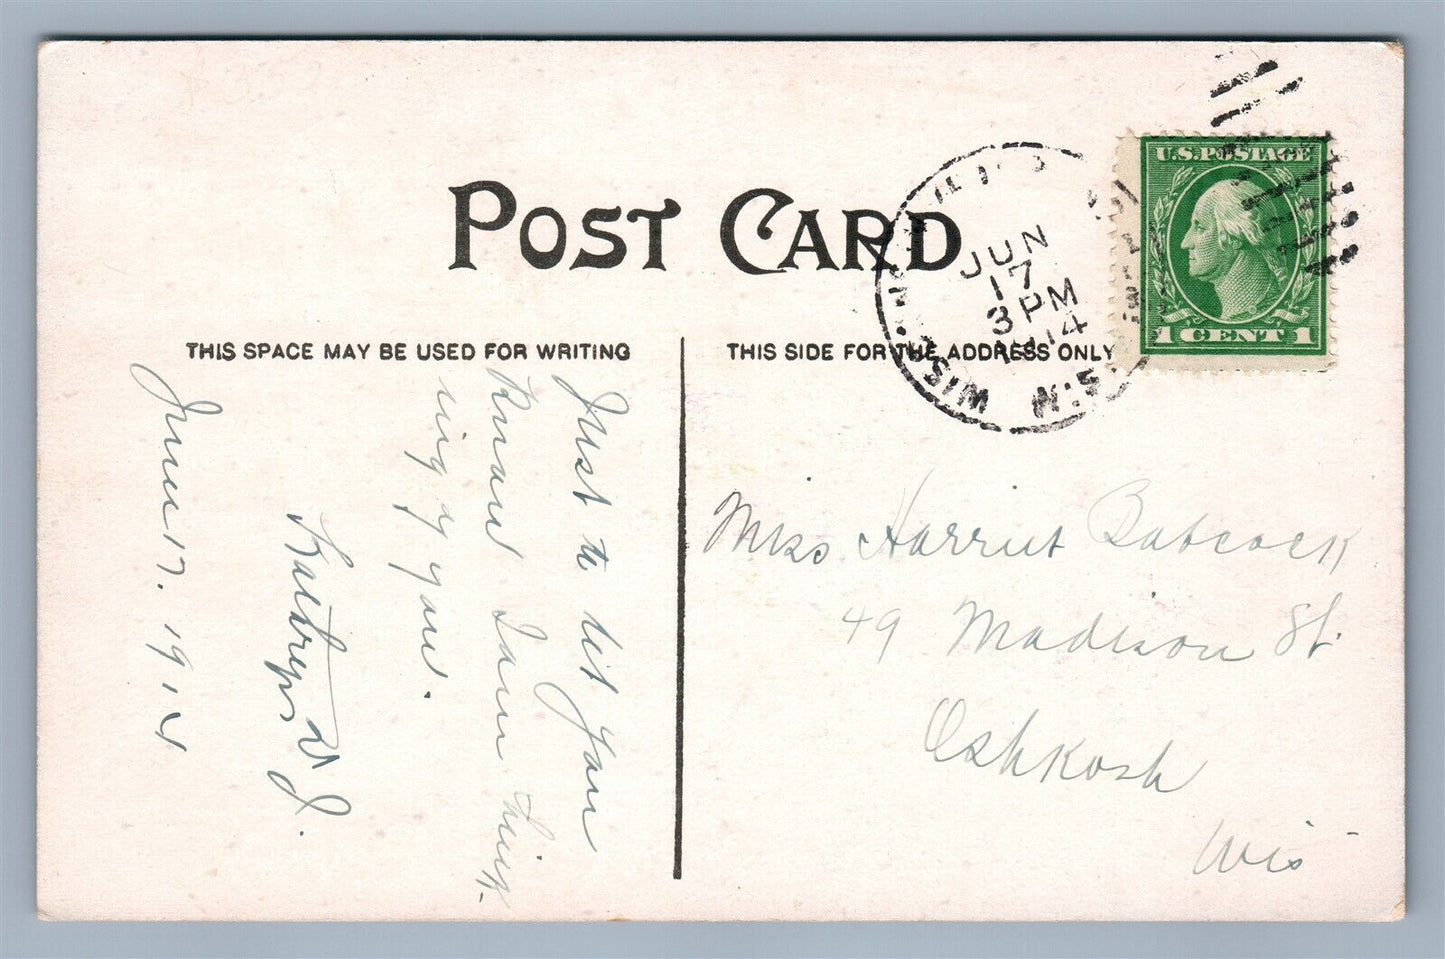 POST CARD
THIS SPACE MAY BE USED FOR WRITING
THIS SIDE FOR THE ADDRESS ONLY
U.S. POSTAGE
1 CENT 1
JUN
17
3 PM
1914
WIS.
Just to let you
Know I am think-
ing of you.
Kathryn V. J.
June 17. 1914
Miss Harriet Babcock
49 Madison St.
Oshkosh
Wis